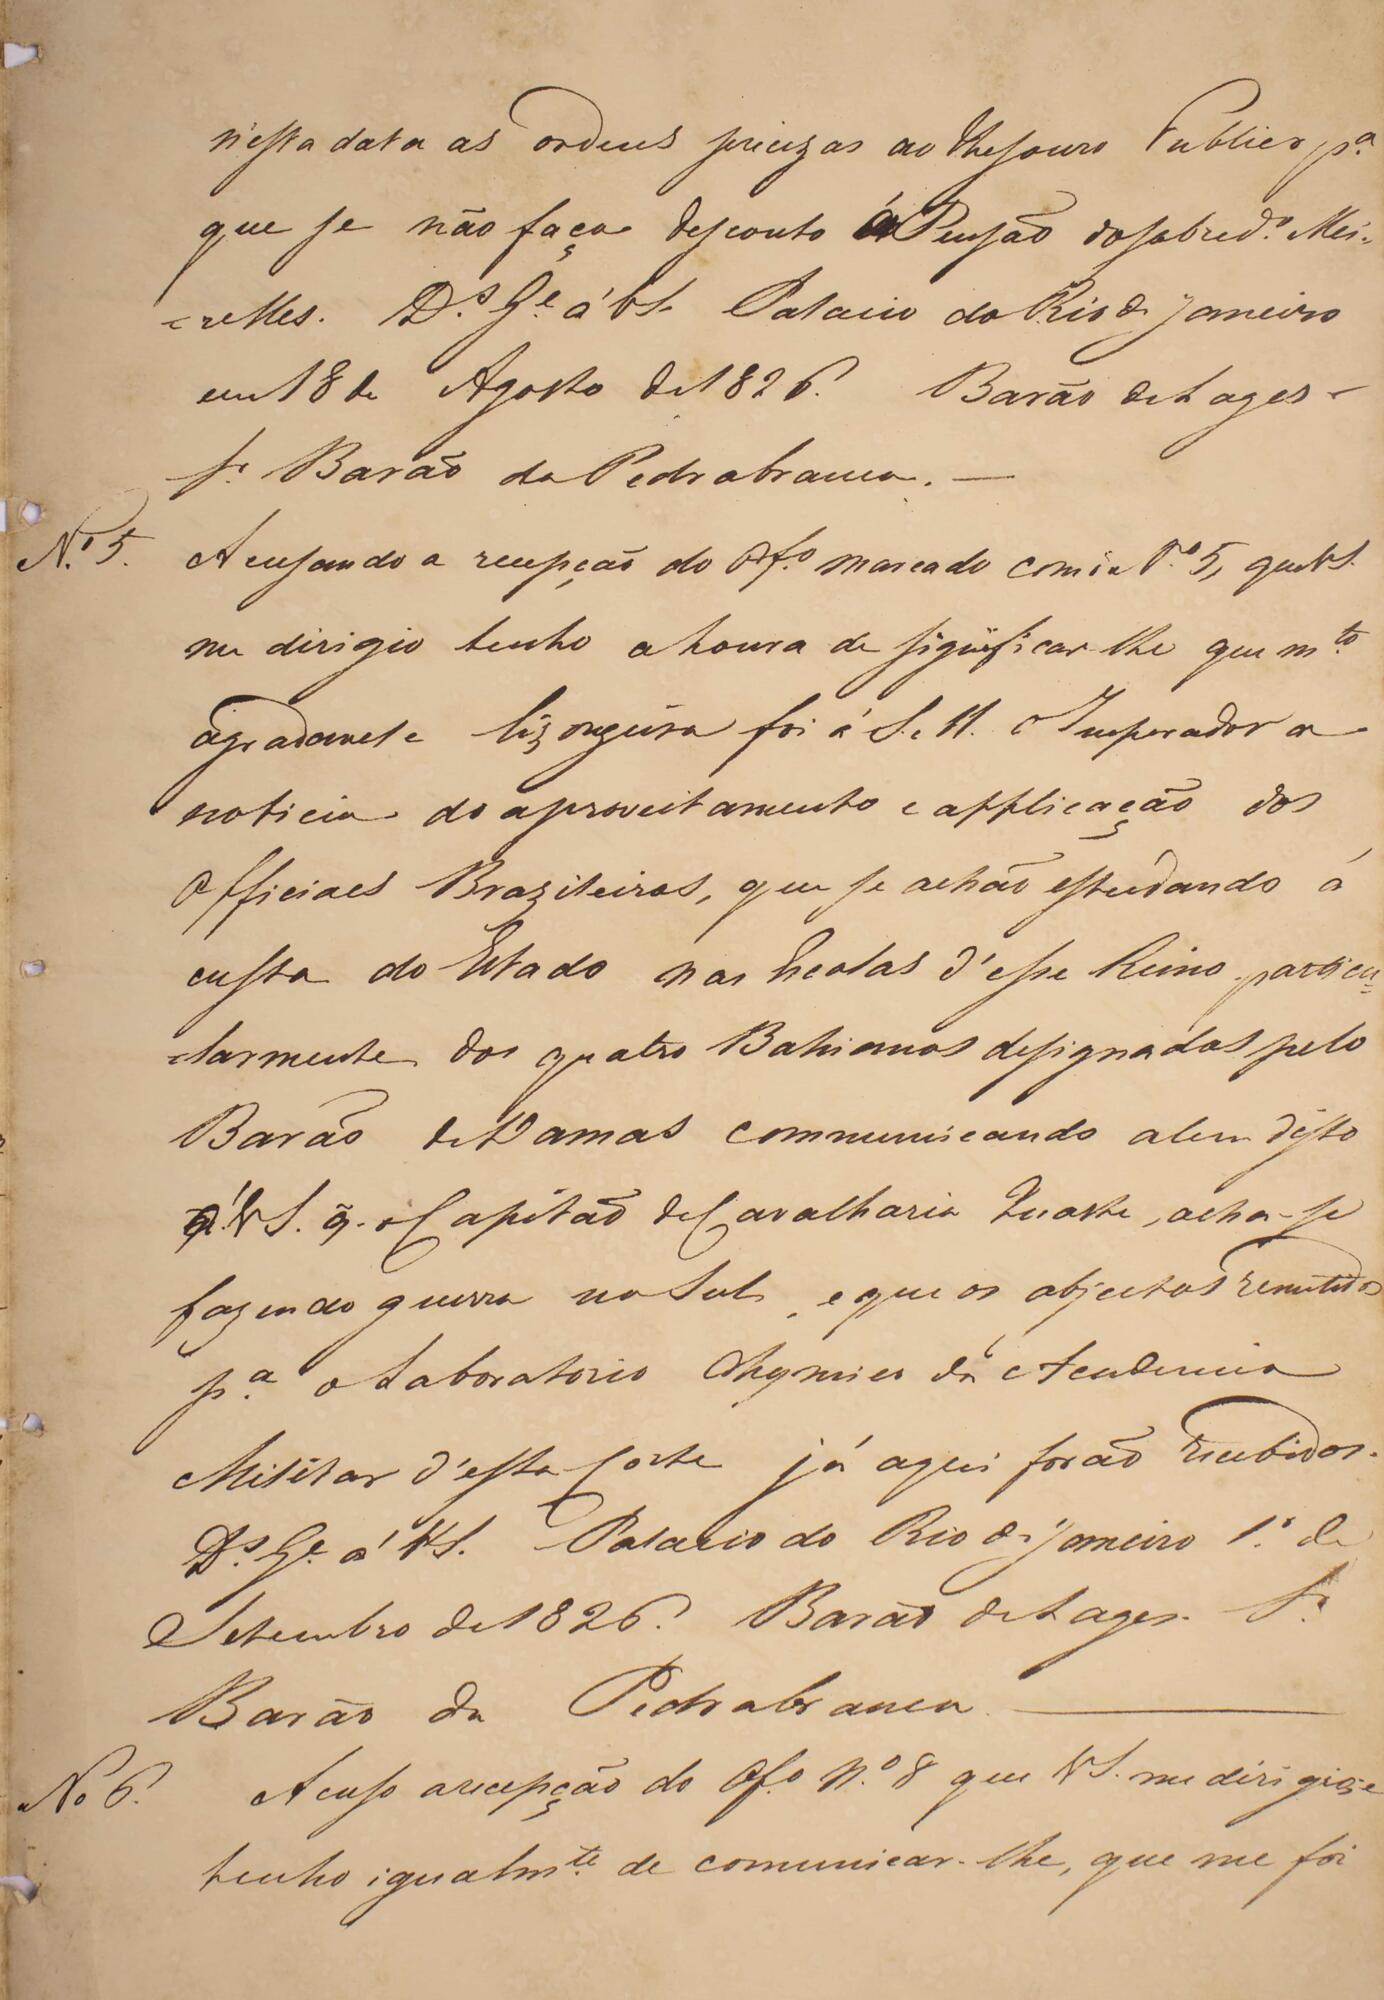 n'esta data as ordens precizas ao Thesouro Publico p.ª
que se não faça desconto á Pensão do sobred.º Mei-
-relles. D.s G.e á VS. Palacio do Rio de Janeiro
em 18 de Agosto de 1826. Barão de Lages -
Sr. Barão da Pedrabranca. —
N.º 5. Acusando a recepção do Off.º marcado com o N.º 5, que VS.
me dirigio tenho a honra de significar-lhe que m.to
agradavel e lizongeira foi á S. M. o Imperador a
noticia do aproveitamento e applicação dos
Officiaes Brazileiros, que se achão estudando á
custa do Estado nas Escolas d'esse Reino particu-
-larmente dos quatro Bahianos designados pelo
Barão de Damas communicando alem disto
á VS. q. o Capitão de Cavalharia Duarte, acha-se
fazendo guerra no Sul, e que os objectos remettidos
p.ª o Laboratorio Chymico da Academia
Militar d'esta Corte já aqui forão recebidos.
D.s G.e á VS. Palacio do Rio de Janeiro 1.º de
Setembro de 1826. Barão de Lages. Sr.
Barão da Pedrabranca
N.º 6. Acuso a recepção do Off.º N.º 8 que VS. me dirigio, e
tenho igualm.te de comunicar-lhe, que me foi